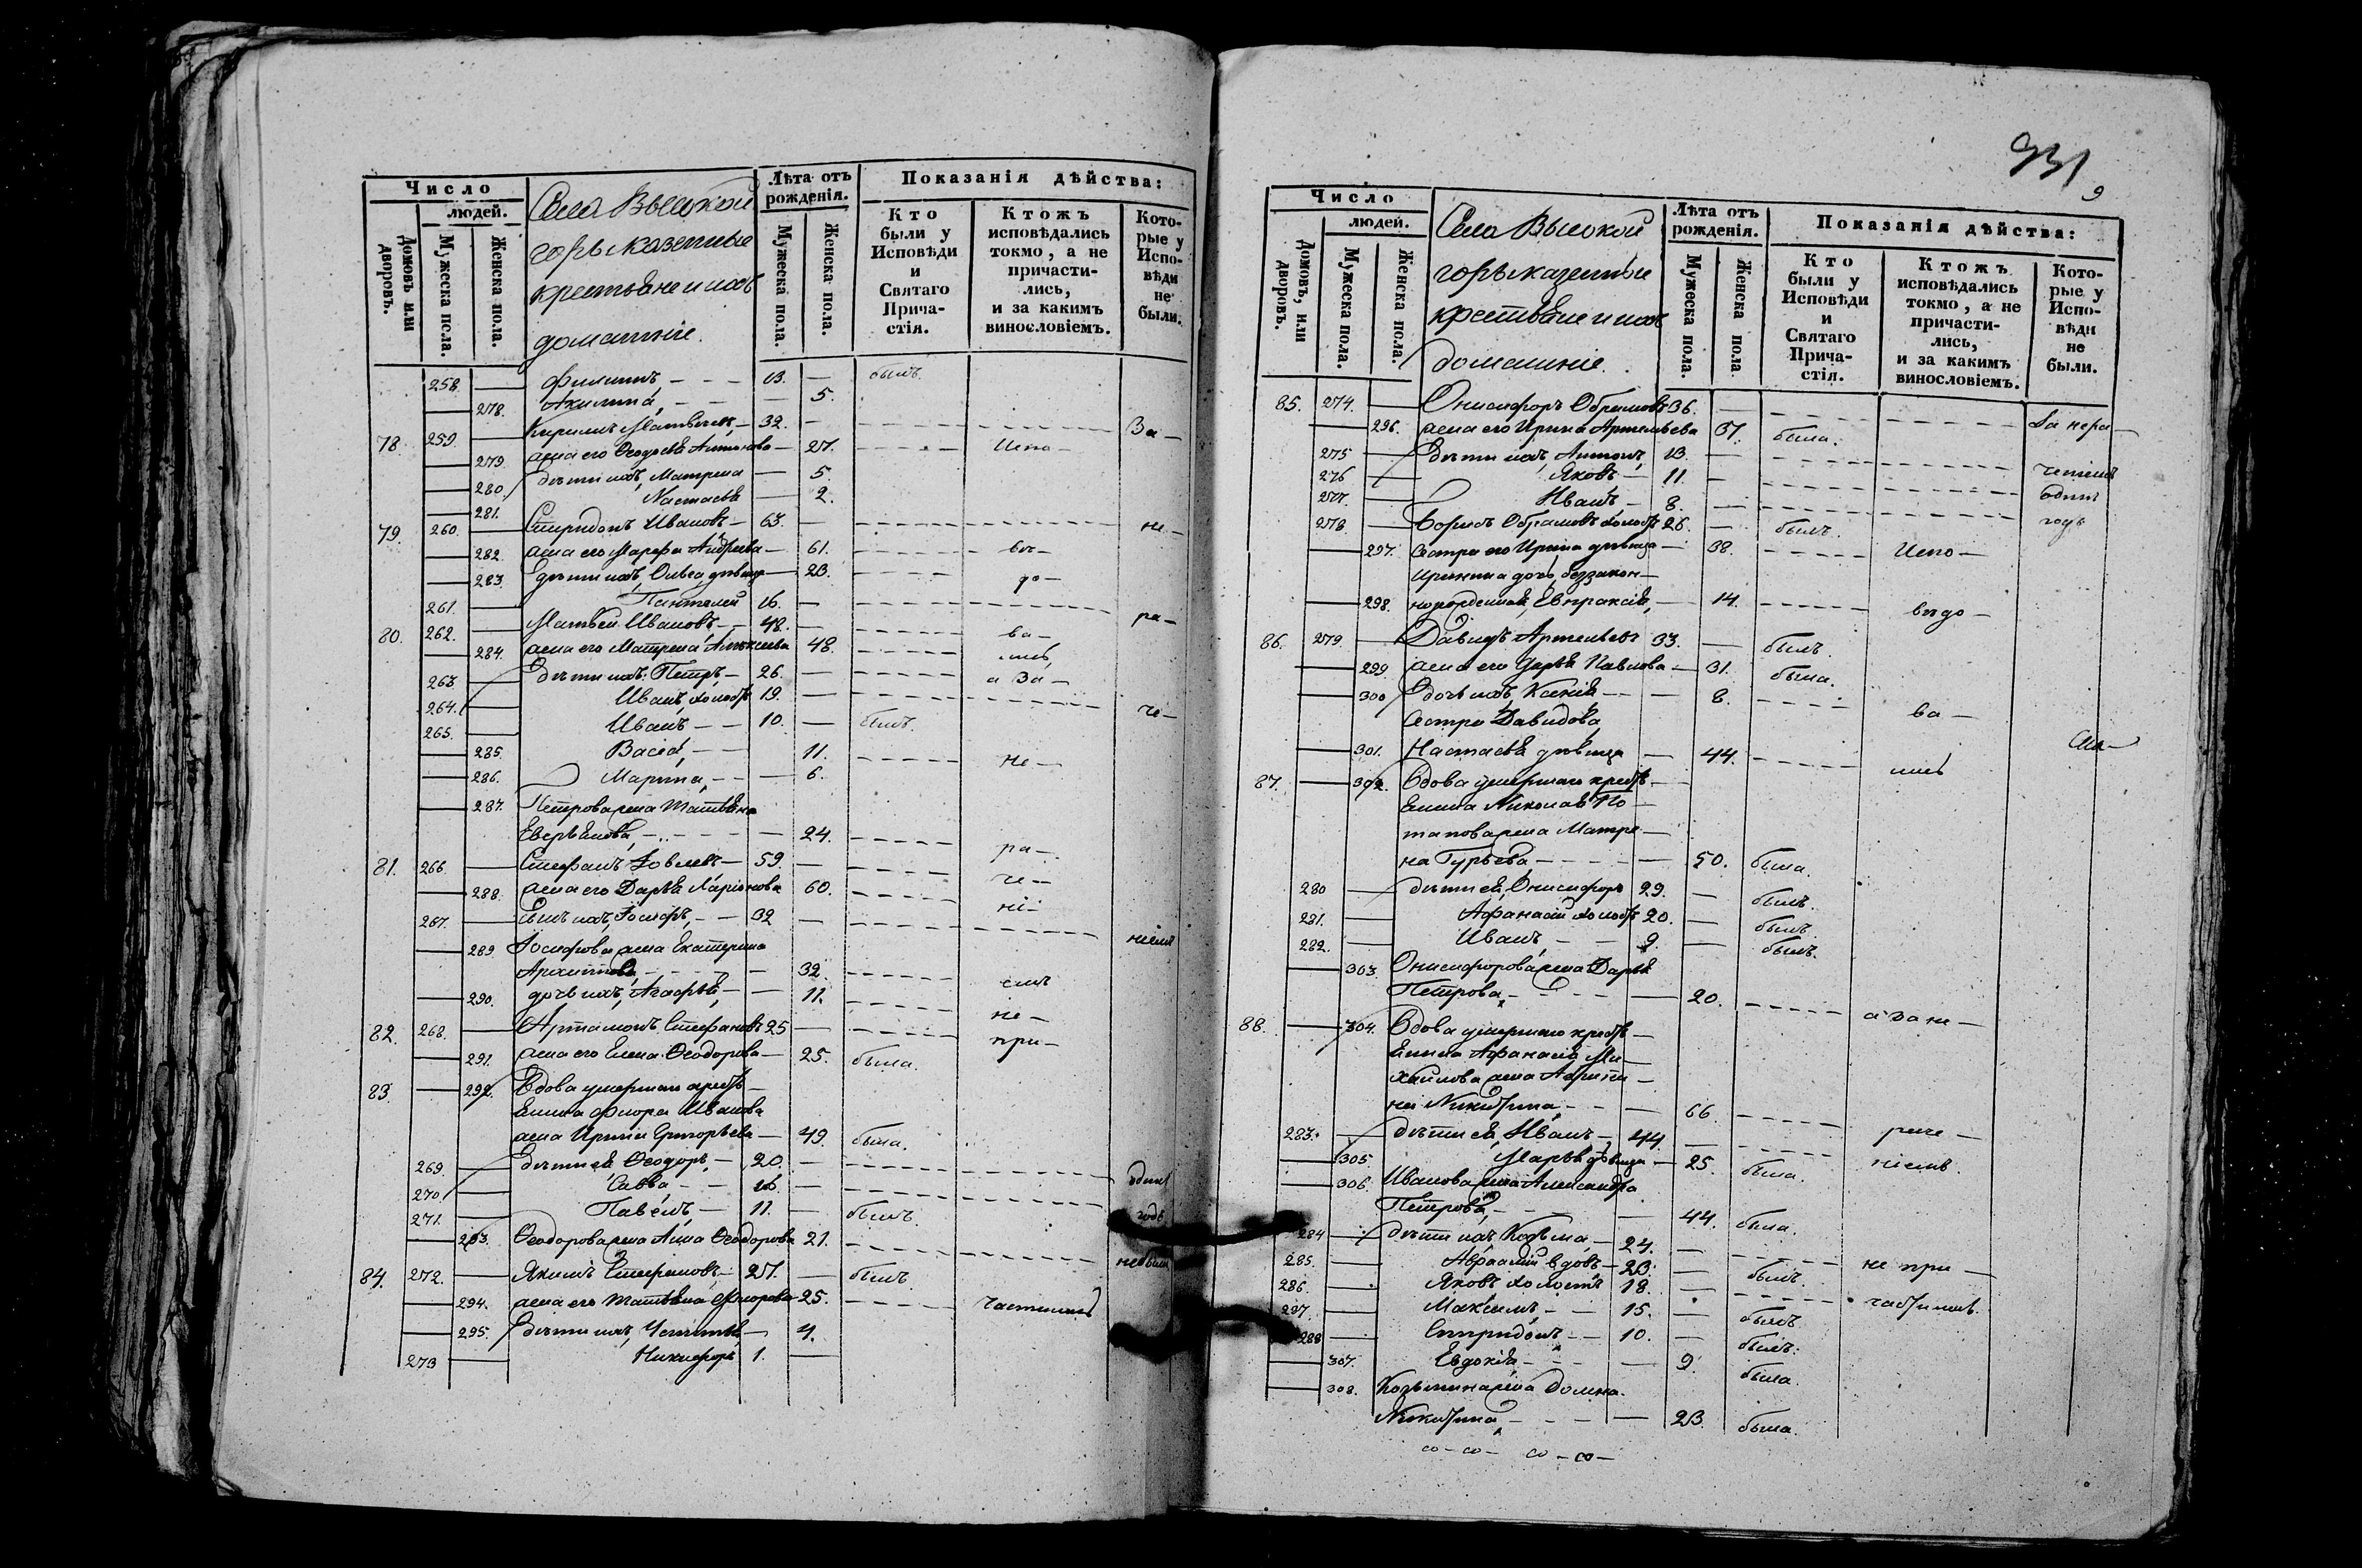 Число
людей.
Домовъ или дворовъ.
Мужеска пола.
Женска пола.
Села Высокой
горы казенные
крестьяне и ихъ
домашніе.
Лѣта отъ рожденія.
Мужеска пола.
Женска пола.
Показанія дѣйства:
Кто были у Исповѣди и Святаго Причастія.
Ктожъ исповѣдались токмо, а не причастились, и за какимъ винословіемъ.
Которые у Исповѣди не были.
258. Филиппъ, 13. былъ.
278. Акилина, 5.
78. 259. Кирилъ Матвеевъ, 32. За-
279. жена его Ѳеодосья Антонова 27. Испо-
280. дѣти ихъ, Матрена 5.
281. Настасья 2.
79. 260. Спиридонъ Ивановъ 63. не-
282. жена его Марфа Андреева 61. вѣ-
283. дѣти ихъ, Ольга дѣвица 23. до-
261. Пантелей 16.
80. 262. Матвей Ивановъ 48. ра-
284. жена его Матрена Алексеева 48. ва-
263. дѣти ихъ Петръ 26. лись,
264. Иванъ, холостъ 19. а за-
265. Иванъ 10. былъ. че-
285. Васса, 11.
286. Марина, 6. не-
287. Петрова жена Татьяна
24. ра-
81. 266. Стефанъ Іовлевъ 59. че-
288. жена его Дарья Ларіонова 60. ні-
267. сынъ ихъ, Іосифъ, 32
289 Іосифова жена Екатерина ніемъ
Архипова, 32. емъ
290. дочь ихъ, Агафья, 11. не-
82. 268. Артамонъ Стефановъ 25 при-
291. жена его Елена Ѳеодорова 25. была.
83. 292. Вдова умершаго кресть-
янина Флора Иванова
жена Ирина Григорьева 49. была.
269. дѣти ея, Ѳеодоръ, 20.
270. Савва 16. одинъ
271. Павелъ 11. былъ. годъ
293. Ѳеодорова жена Анна Ѳеодорова 21. не были
84. 272. Якимъ Стефановъ 27. былъ.
294. жена его Татьяна Флорова 25. частились
295. дѣти ихъ, 4.
273 Никифоръ 1.
931
9
Число
людей.
Домовъ, или дворовъ.
Мужеска пола.
Женска пола.
Села Высокой
горы казенные
крестьяне и ихъ
домашніе.
Лѣта отъ рожденія.
Мужеска пола.
Женска пола.
Показанія дѣйства:
Кто были у Исповѣди и Святаго Причастія.
Ктожъ исповѣдались токмо, а не причастились, и за какимъ винословіемъ.
Которые у Исповѣди не были.
85. 274. Онисифоръ Обрамовъ 36. За нера-
296. жена его Ирина Артемьева 37. была.
275 дѣти ихъ, Антонъ, 13. ченіемъ
276 Яковъ 11. одинъ
277. Иванъ 8. годъ
278. Борисъ Обрамовъ холостъ 26. былъ.
297. Сестра его Ирина дѣвица 38. Испо-
Иринина дочь, беззакон-
298. норожденная Евпраксія, 14. вѣдо-
86. 279. Давидъ Артемьевъ 33. былъ.
299 жена его Дарья Павлова 31. была.
300 дочь ихъ Ксенія 8. ва-
Сестра Давидова,
301. Настасья дѣвица 44. лись
87. 302. Вдова умершаго кресть-
янина Николая По-
тапова жена Матре-
на Гурьева, 50. была.
280 дѣти ея, Онисифоръ 29. былъ.
281. Афанасій холостъ 20. былъ.
282. Иванъ, 9. былъ.
303. Онисифорова жена Дарья
Петрова, 20. а за не-
88. 304. Вдова умершаго кресть-
янина Афанасія Ми-
хайлова жена Агрипи-
на Никитина, 66.
283. дѣти ея, Иванъ, 44. раче-
305. Марья дѣвица 25. была. ніемъ.
306. Иванова жена Александра
Петрова, 44. была.
284 дѣти ихъ, Козьма, 24. не при-
285. Авраамій вдовъ 23. былъ.
286. Яковъ холостъ 18. частились.
287 Максимъ 15. былъ
288 Спиридонъ 10. былъ.
307. Евдокія, 9. была.
308. Козьмина жена Домна
Никитина, 23. была.